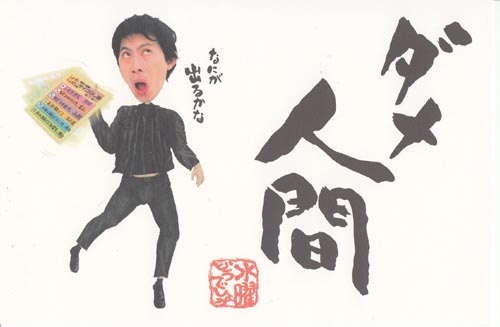 ダメ
人間
なにが
出るかな
水曜
どうでしょう